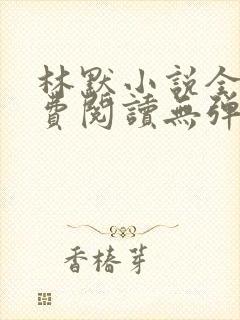 林默小说全
費閱讀無弹
香椿芽